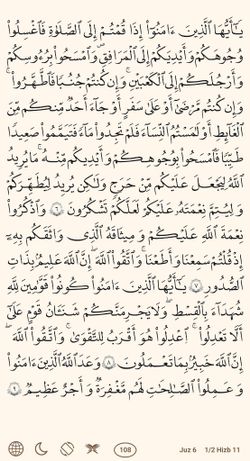 يَٰٓأَيُّهَا ٱلَّذِينَ ءَامَنُوٓا۟ إِذَا قُمْتُمْ إِلَى ٱلصَّلَوٰةِ فَٱغْسِلُوا۟
وُجُوهَكُمْ وَأَيْدِيَكُمْ إِلَى ٱلْمَرَافِقِ وَٱمْسَحُوا۟ بِرُءُوسِكُمْ
وَأَرْجُلَكُمْ إِلَى ٱلْكَعْبَيْنِ ۚ وَإِن كُنتُمْ جُنُبًا فَٱطَّهَّرُوا۟ ۚ
وَإِن كُنتُم مَّرْضَىٰٓ أَوْ عَلَىٰ سَفَرٍ أَوْ جَآءَ أَحَدٌ مِّنكُم مِّنَ
ٱلْغَآئِطِ أَوْ لَٰمَسْتُمُ ٱلنِّسَآءَ فَلَمْ تَجِدُوا۟ مَآءً فَتَيَمَّمُوا۟ صَعِيدًا
طَيِّبًا فَٱمْسَحُوا۟ بِوُجُوهِكُمْ وَأَيْدِيكُم مِّنْهُ ۚ مَا يُرِيدُ
ٱللَّهُ لِيَجْعَلَ عَلَيْكُم مِّنْ حَرَجٍ وَلَٰكِن يُرِيدُ لِيُطَهِّرَكُمْ
وَلِيُتِمَّ نِعْمَتَهُۥ عَلَيْكُمْ لَعَلَّكُمْ تَشْكُرُونَ ٦ وَٱذْكُرُوا۟
نِعْمَةَ ٱللَّهِ عَلَيْكُمْ وَمِيثَٰقَهُ ٱلَّذِى وَاثَقَكُم بِهِۦٓ
إِذْ قُلْتُمْ سَمِعْنَا وَأَطَعْنَا ۖ وَٱتَّقُوا۟ ٱللَّهَ ۚ إِنَّ ٱللَّهَ عَلِيمٌۢ بِذَاتِ
ٱلصُّدُورِ ٧ يَٰٓأَيُّهَا ٱلَّذِينَ ءَامَنُوا۟ كُونُوا۟ قَوَّٰمِينَ لِلَّهِ
شُهَدَآءَ بِٱلْقِسْطِ ۖ وَلَا يَجْرِمَنَّكُمْ شَنَـَٔانُ قَوْمٍ عَلَىٰٓ
أَلَّا تَعْدِلُوا۟ ۚ ٱعْدِلُوا۟ هُوَ أَقْرَبُ لِلتَّقْوَىٰ ۖ وَٱتَّقُوا۟ ٱللَّهَ ۚ
إِنَّ ٱللَّهَ خَبِيرٌۢ بِمَا تَعْمَلُونَ ٨ وَعَدَ ٱللَّهُ ٱلَّذِينَ ءَامَنُوا۟
وَعَمِلُوا۟ ٱلصَّٰلِحَٰتِ ۙ لَهُم مَّغْفِرَةٌ وَأَجْرٌ عَظِيمٌ ٩
108 Juz 6 1/2 Hizb 11